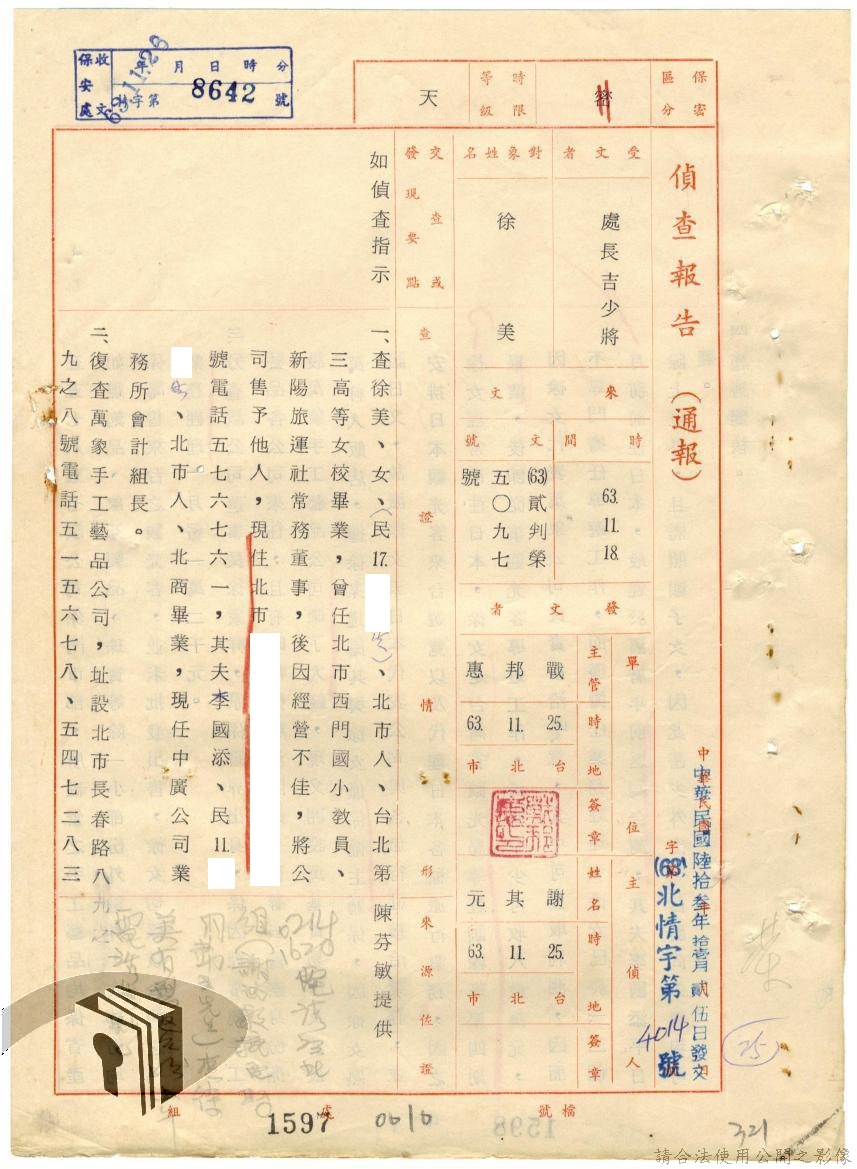 偵查報告（通報）
中華民國陸拾叁年拾壹月貳伍日發文
(63)北情字第4014號
保密區分
密
時限等級
天
保安處收文
63.11.26
年月日時分
字第8642號
受文者
處長吉少將
對象姓名
徐美
來文
時間
63.11.18
文號
(63)貳判榮五〇九七號
發文者
單位
主管
戰邦惠
時
63.11.25.
地
台北市
簽章
主偵人
姓名
謝其元
時
63.11.25.
地
台北市
簽章
交查或發現要點
如偵查指示
查證情形
一、查徐美、女、（民17.
）、北市人、台北第
三高等女校畢業，曾任北市西門國小教員、
新陽旅運社常務董事，後因經營不佳，將公
司售予他人，現住北市
號電話五七六六七六一，其夫李國添、民11.
、北市人、北商畢業，現任中廣公司業
務所會計組長。
二、復查萬象手工藝品公司，址設北市長春路八
九之八號電話五一五六七八、五四七二八三
來源佐證
陳芬敏提供
0214
1620
組
處
檔號
1597
0010
25
321
1598
請合法使用公開之影像